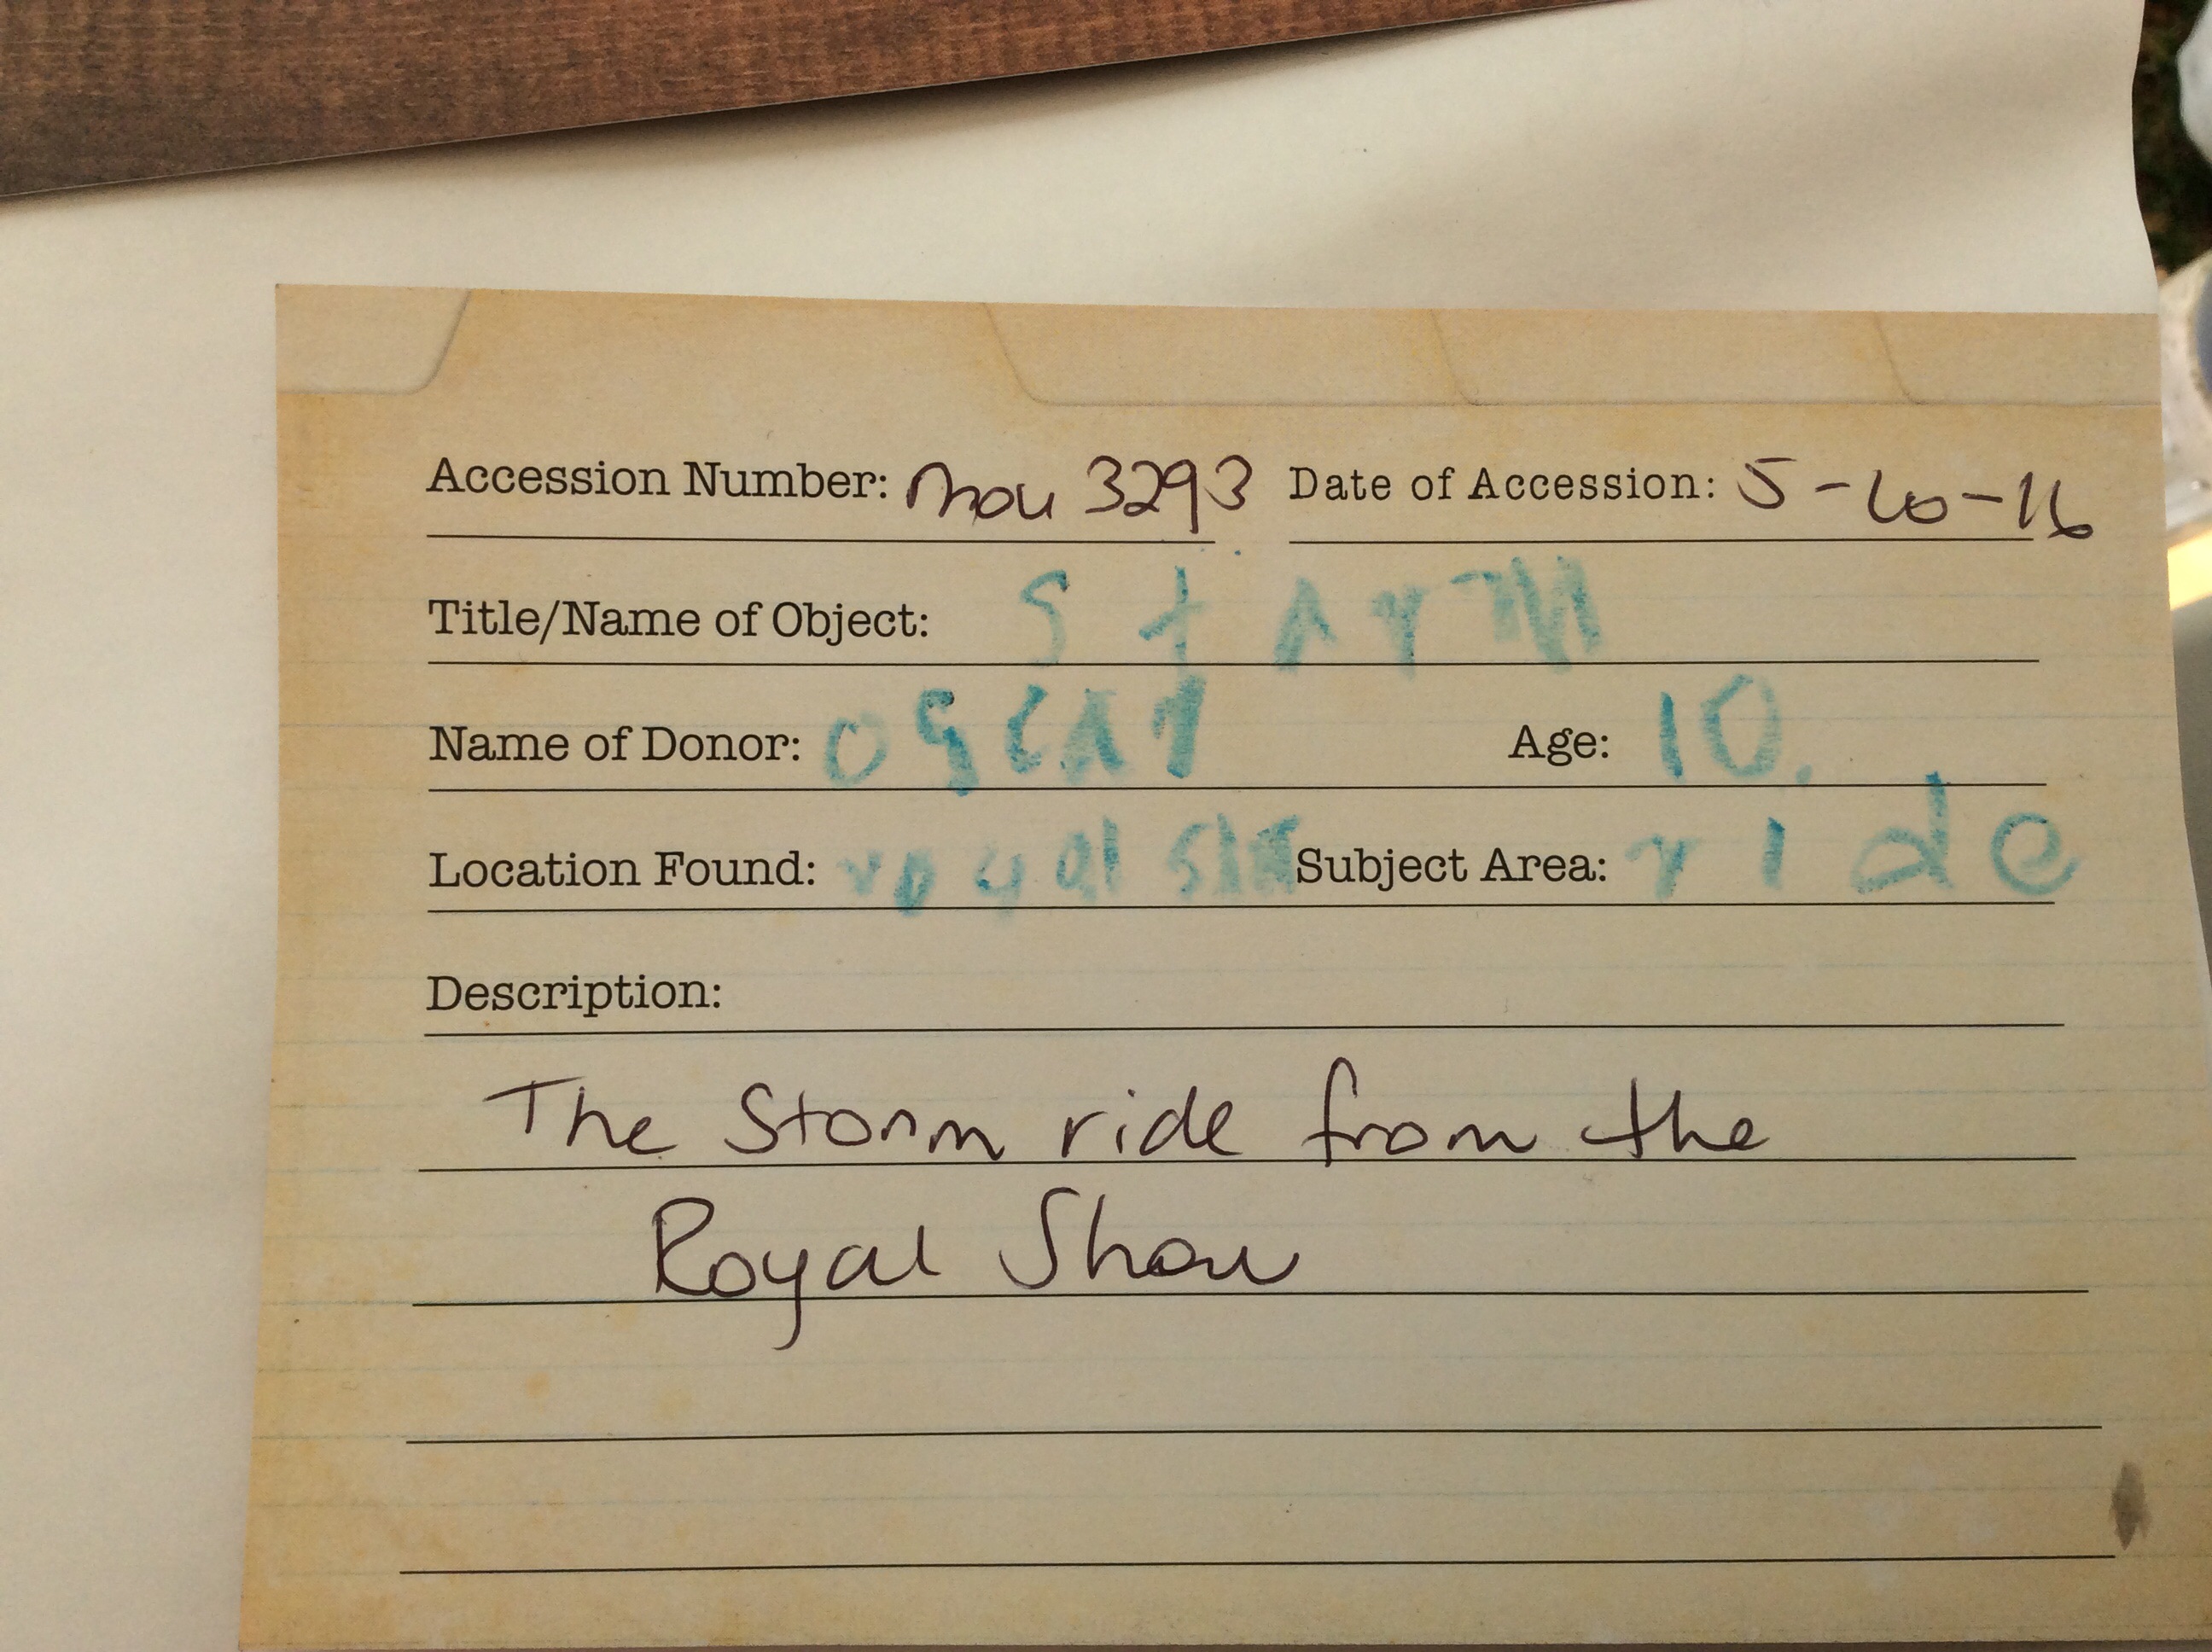 Accession Number: Mou 3293 Date of Accession: 5-10-16
Title/Name of Object:
Name of Donor: oscar Age: 10.
Location Found: royal Subject Area: ride
Description:
The Storm ride from the
Royal Show